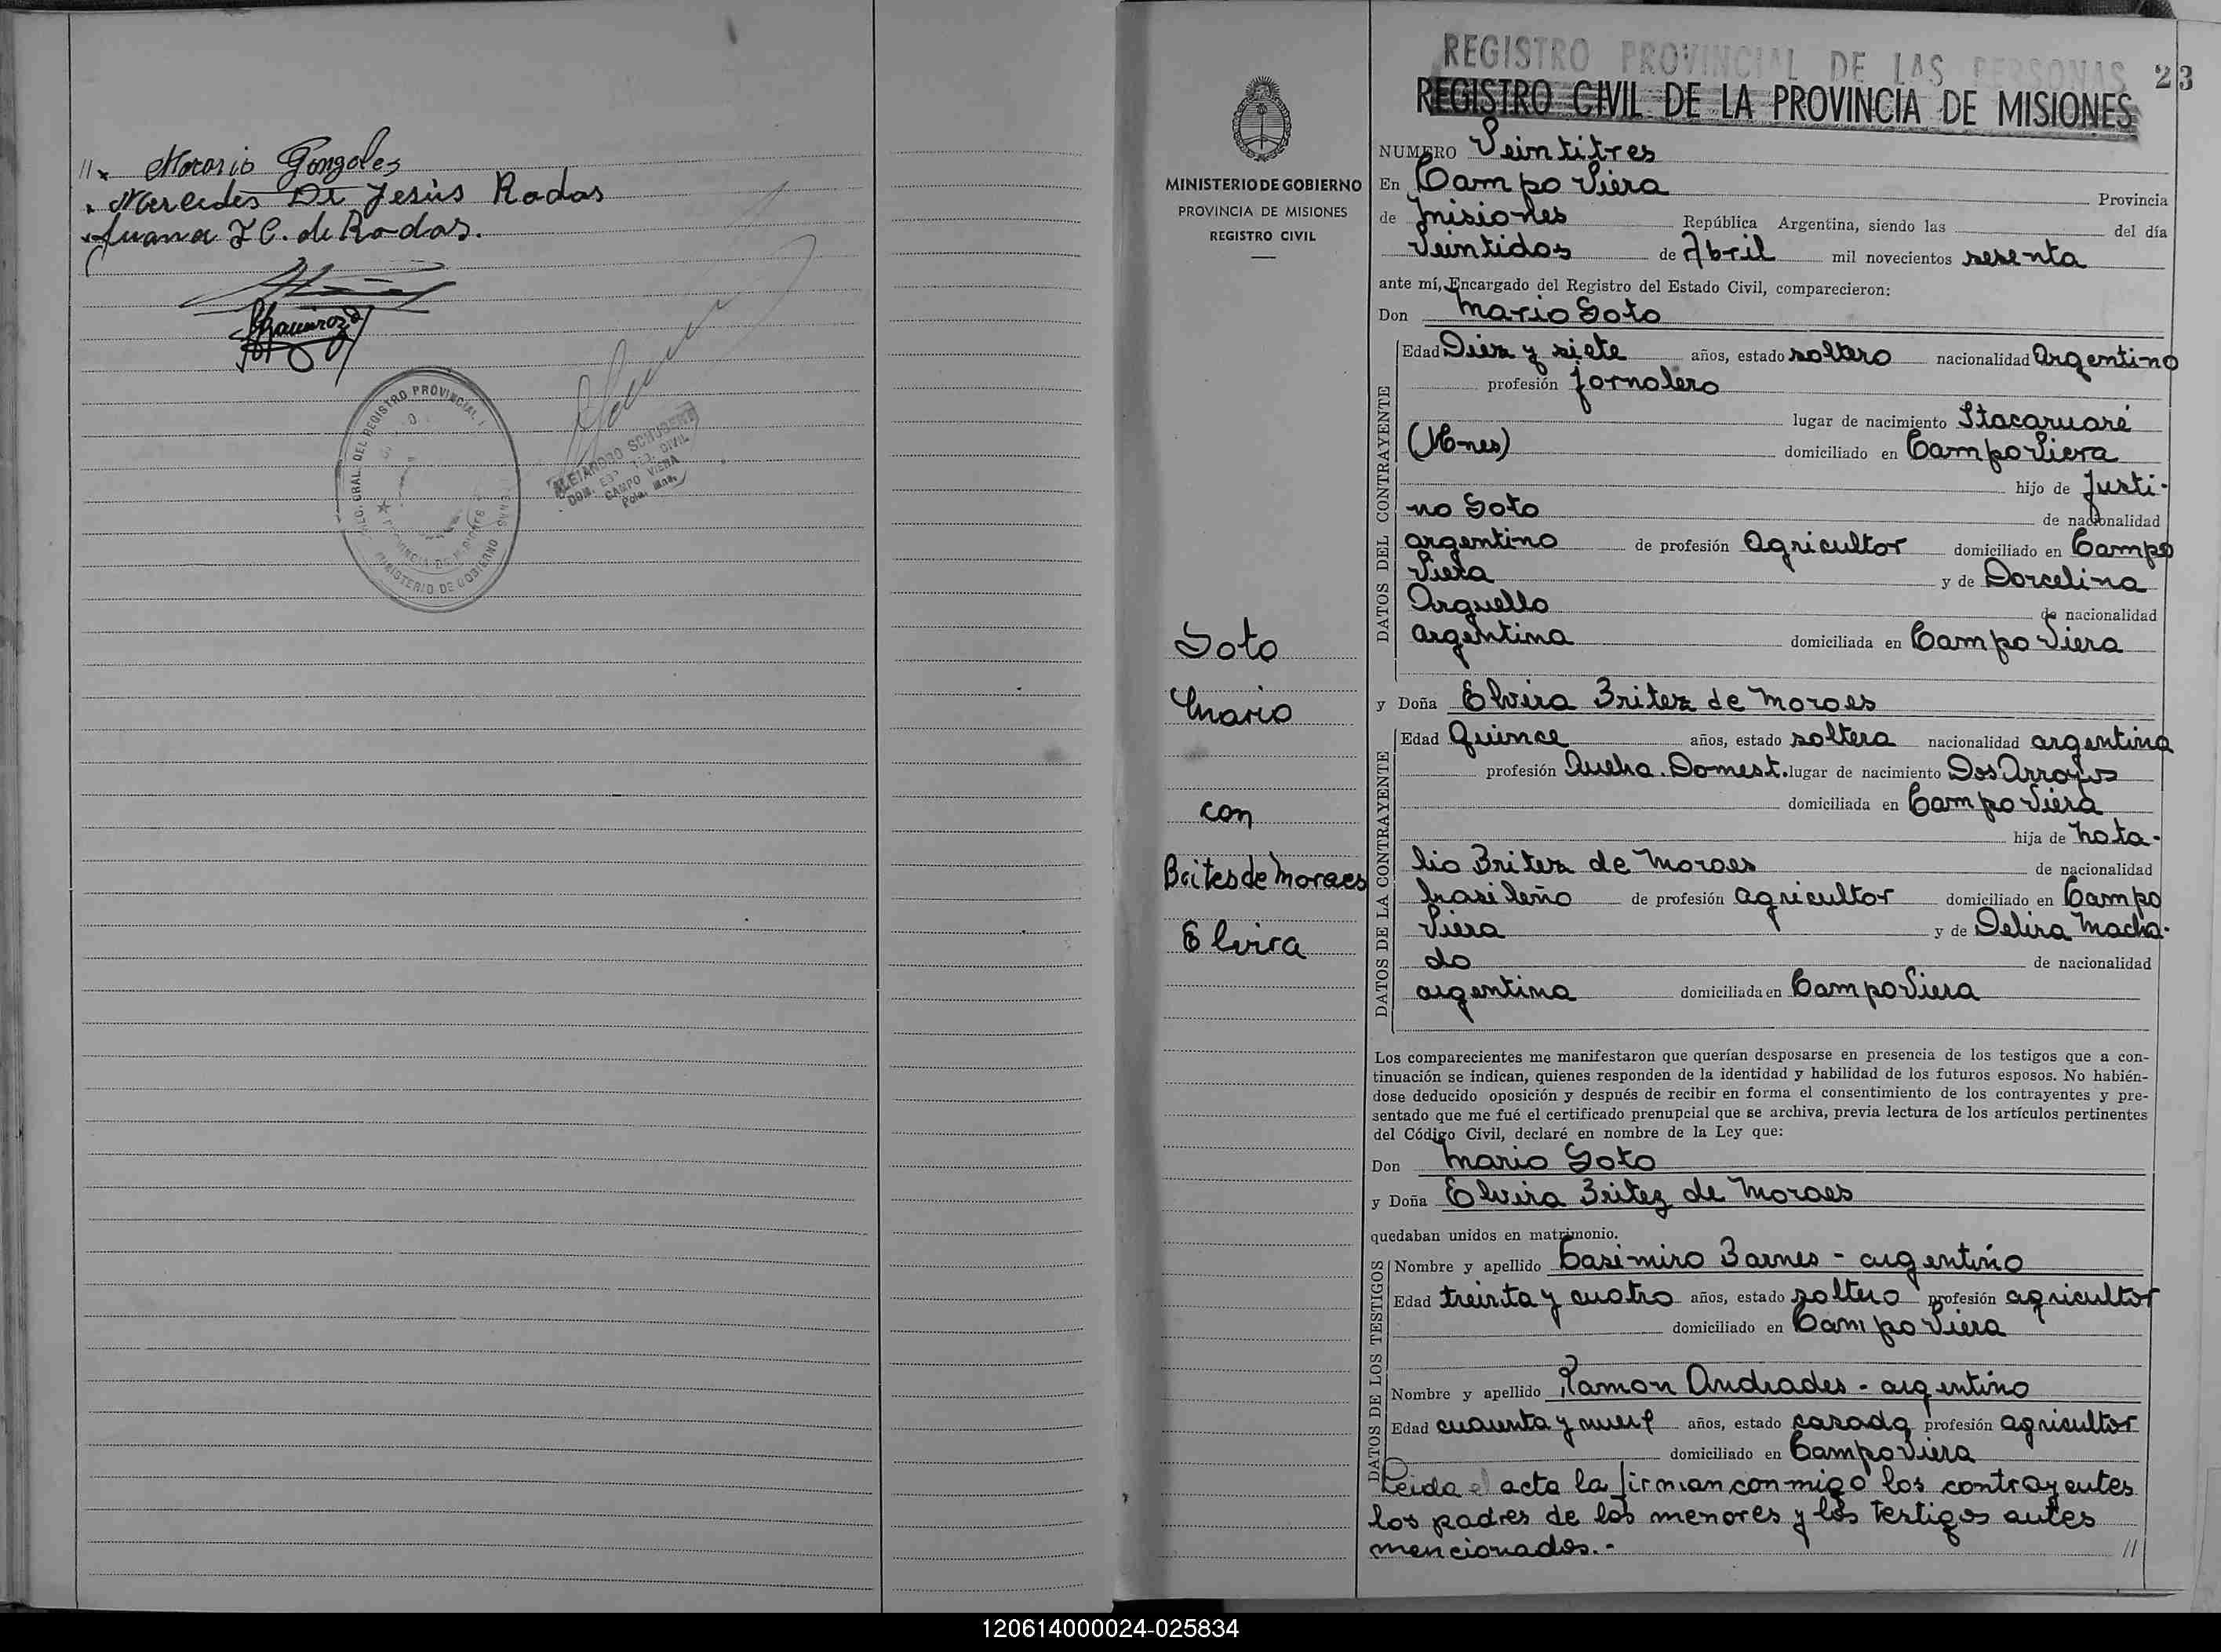 // x Mocario Gonzales
x Mercedes De Jesús Rodas
x Juana I C. de Rodas.
REGISTRO PROVINCIAL
MINISTERIO DE GOBIERNO
ALEJANDRO SCHUBERT
CAMPO VIERA
REGISTRO PROVINCIAL DE LAS PERSONAS
23
REGISTRO CIVIL DE LA PROVINCIA DE MISIONES
MINISTERIO DE GOBIERNO
PROVINCIA DE MISIONES
REGISTRO CIVIL
Soto
Mario
con
Britesde Moraes
Elvira
NUMERO Veintitres
En Campo Viera Provincia
de Misiones República Argentina, siendo las del día
Veintidos de Abril mil novecientos sesenta
ante mí, Encargado del Registro del Estado Civil, comparecieron:
Don Mario Soto
DATOS DEL CONTRAYENTE
Edad Diez y siete años, estado soltero nacionalidad Argentino
profesión jornalero
lugar de nacimiento Itacaruaré
(Mnes) domiciliado en Campo Viera
hijo de Justi-
no Soto de nacionalidad
argentino de profesión Agricultor domiciliado en Campo
Viera y de Dorcelina
Arguello de nacionalidad
argentina domiciliada en Campo Viera
y Doña Elvira Britez de Moraes
DATOS DE LA CONTRAYENTE
Edad Quince años, estado soltera nacionalidad argentina
profesión Queha. Domest. lugar de nacimiento Dos Arroyos
domiciliada en Campo Viera
hija de Nata-
lio Britez de Moraes de nacionalidad
brasileño de profesión agricultor domiciliado en Campo
Viera y de Delira Macha-
do de nacionalidad
argentina domiciliada en Campo Viera
Los comparecientes me manifestaron que querían desposarse en presencia de los testigos que a con-
tinuación se indican, quienes responden de la identidad y habilidad de los futuros esposos. No habién-
dose deducido oposición y después de recibir en forma el consentimiento de los contrayentes y pre-
sentado que me fué el certificado prenupcial que se archiva, previa lectura de los artículos pertinentes
del Código Civil, declaré en nombre de la Ley que:
Don Mario Soto
y Doña Elvira Britez de Moraes
quedaban unidos en matrimonio.
DATOS DE LOS TESTIGOS
Nombre y apellido Casimiro Barnes - argentino
Edad treinta y cuatro años, estado soltero profesión agricultor
domiciliado en Campo Viera
Nombre y apellido Ramon Andrades - argentino
Edad cuarenta y nueve años, estado casado profesión agricultor
domiciliado en Campo Viera
Leida el acta la firman conmigo los contrayentes
los padres de los menores y los testigos antes
mencionados.- //
120614000024-025834